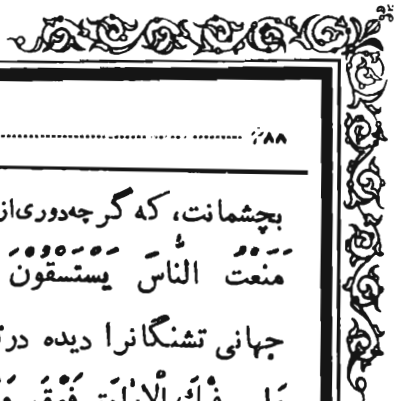 ۲۸۸
بچشمانت، که گر چه‌دوری‌از
مَنَعْتُ النّاسَ يَسْتَسْقُونَ
جهانی تشنگانرا دیده در